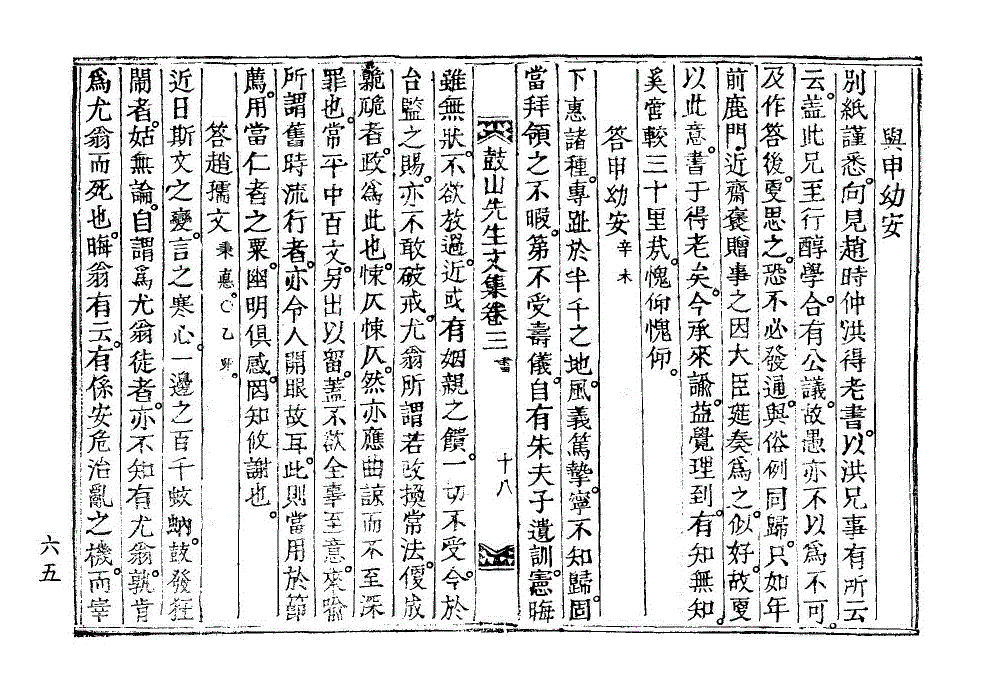 與申幼安
別紙謹悉。向見趙時仲洪得老書。以洪兄事有所云
云。盖此兄至行醇學。合有公議。故愚亦不以爲不可。
及作答後。更思之。恐不必發通。與俗例同歸。只如年
前鹿門,近齋褒贈事之因大臣筵奏爲之。似好。故更
以此意。書于得老矣。今承來諭。益覺理到。有知無知。
奚啻較三十里哉。愧仰愧仰。
答申幼安 辛未
下惠諸種。專趾於半千之地。風義篤摯。寧不知歸。固
當拜領之不暇。第不受壽儀。自有朱夫子遺訓。憲晦
鼓山先生文集卷三 書 十八
雖無狀。不欲放過。近或有姻親之饋。一切不受。今於
台監之賜。亦不敢破戒。尤翁所謂若改換常法。便成
臲卼者。政爲此也。悚仄悚仄。然亦應曲諒而不至深
罪也。常平中百文。另出以留。蓋不欲全辜至意。來喩
所謂舊時流行者。亦令人開眼故耳。此則當用於節
薦。用當仁者之粟。幽明俱感。罔知攸謝也。
答趙孺文 秉悳。○乙卯。
近日斯文之變。言之寒心。一邊之百千蚊蚋。鼓發狂
鬧者。姑無論。自謂爲尤翁徒者。亦不知有尤翁。孰肯
爲尤翁而死也。晦翁有云。有係安危治亂之機。而宰
六五